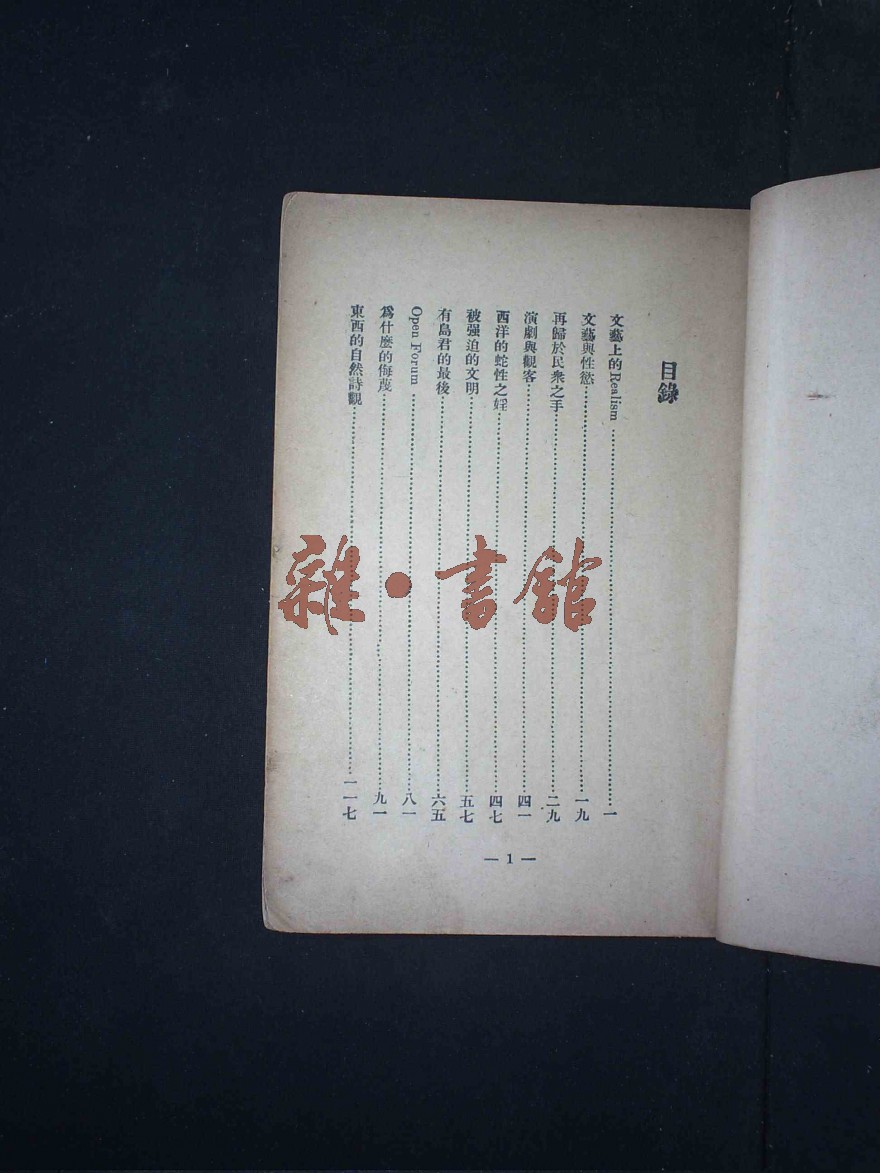 目錄
文藝上的Realism⋯⋯⋯⋯一
文藝與性慾⋯⋯⋯⋯一九
再歸於民衆之手⋯⋯⋯⋯二九
演劇與觀客⋯⋯⋯⋯四一
西洋的蛇性之婬⋯⋯⋯⋯四七
被强迫的文明⋯⋯⋯⋯五七
有島君的最後⋯⋯⋯⋯六五
Open Forum⋯⋯⋯⋯八一
爲什麽的侮蔑⋯⋯⋯⋯九一
東西的自然詩觀⋯⋯⋯⋯一一七
— 1 —
雜·書館